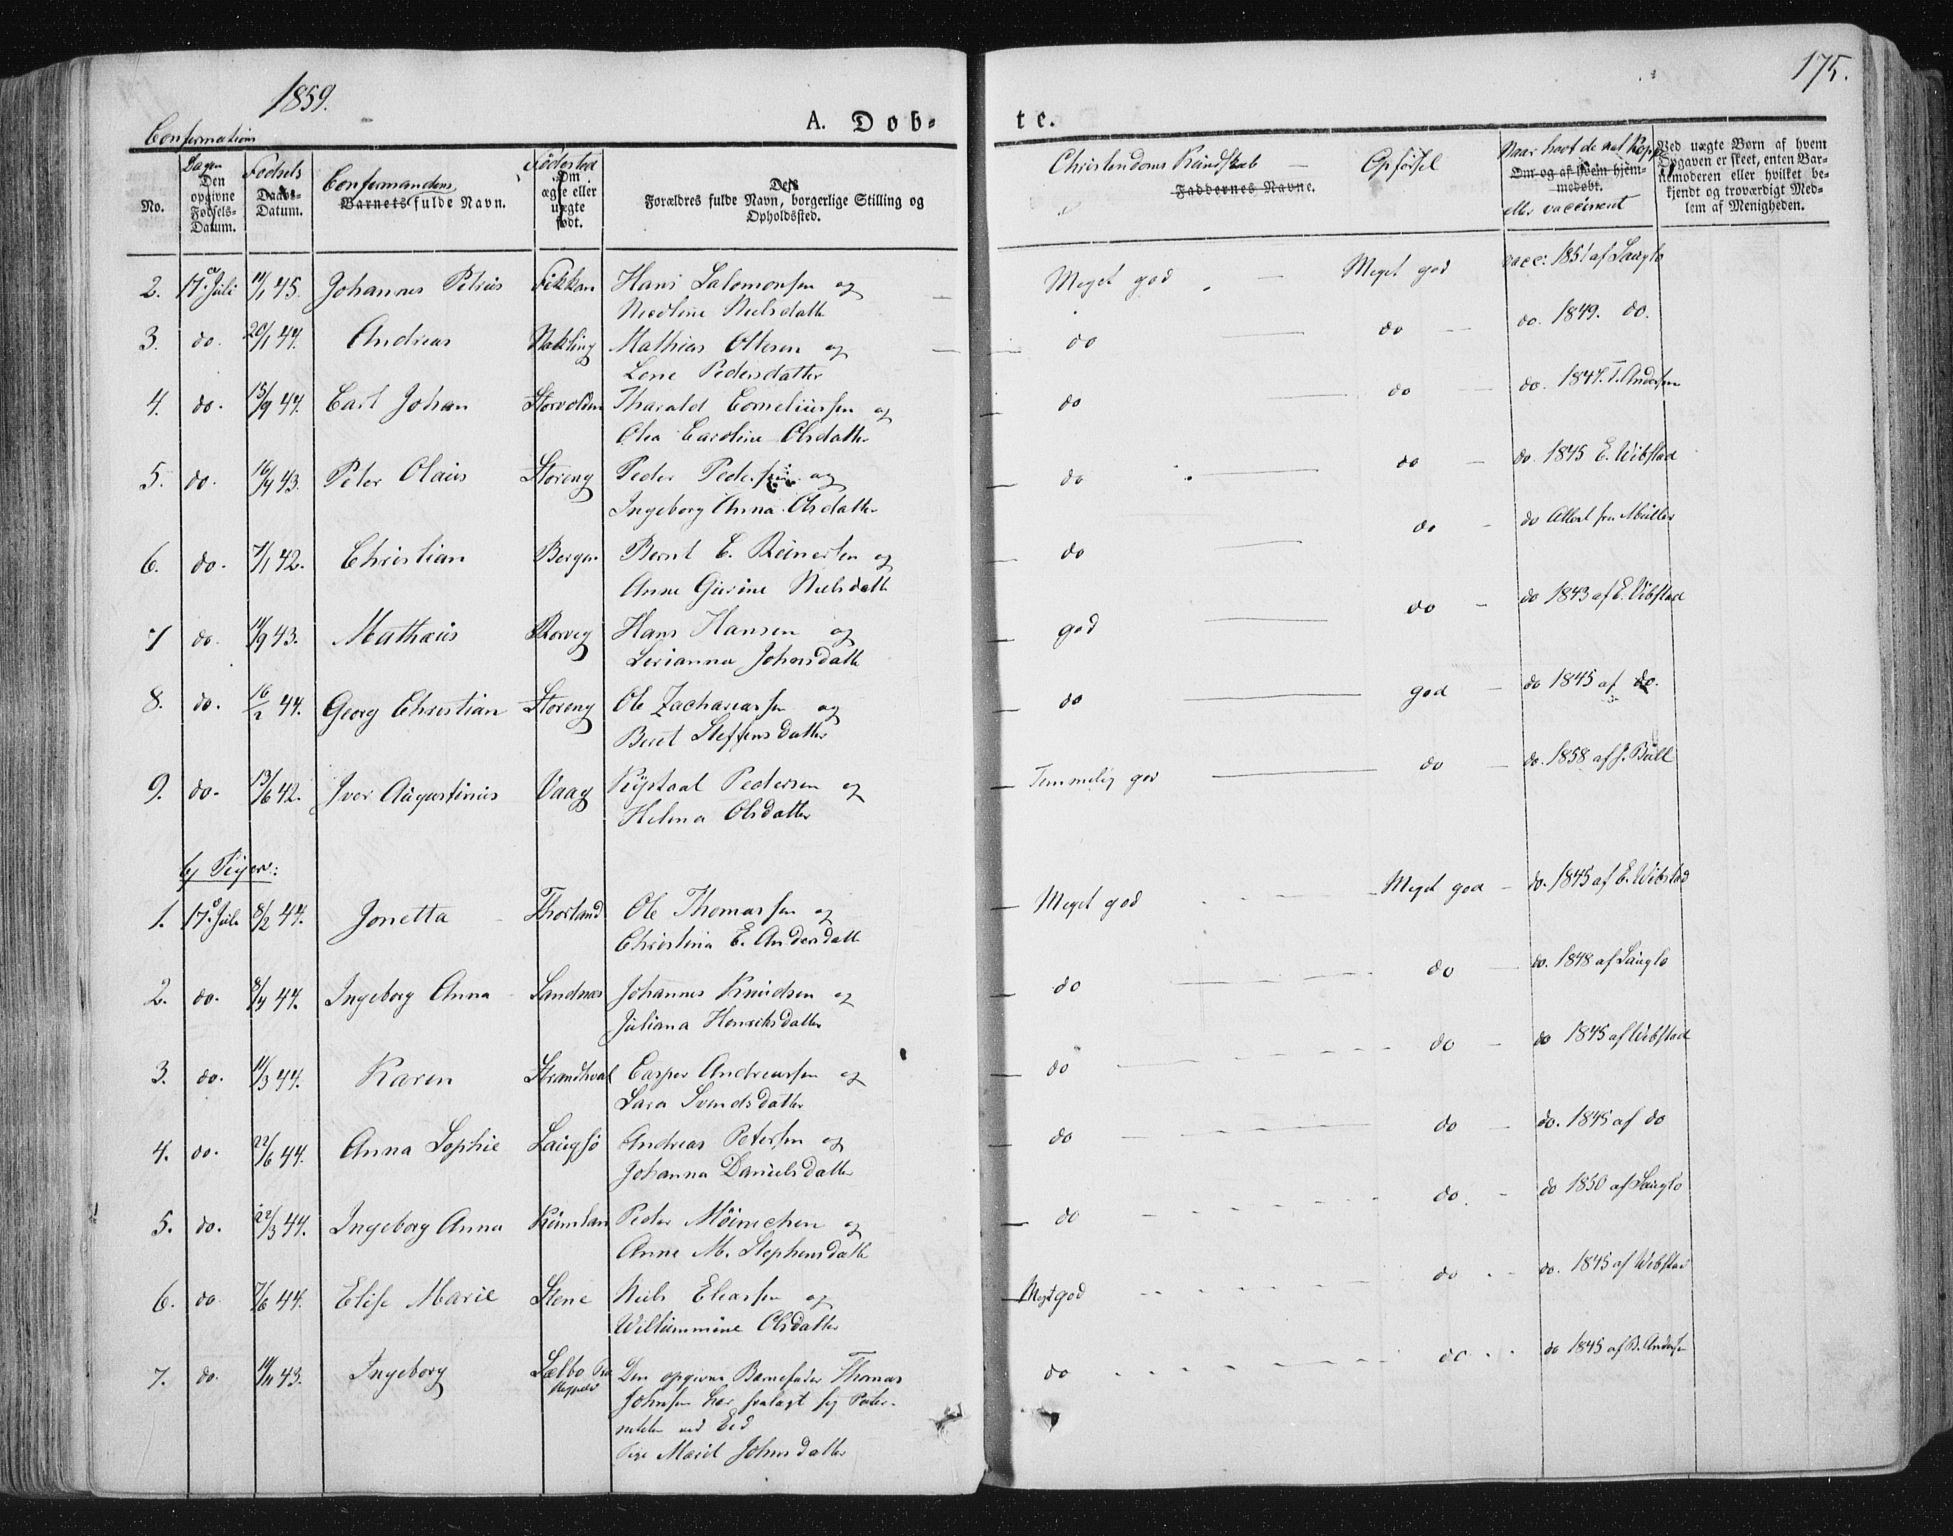 1859.
175.
A. Dob-
te.
Confirmations
Dagen
Den opgivne Fødsels-Datum.
Fødsels
Daabs-Datum.
No.
Confirmandens
Barnets fulde Navn.
Fødested
Om ægte eller uægte født.
Dets
Forældres fulde Navn, borgerlige Stilling og
Opholdssted.
Christendoms Kundskab
Faddernes Navne.
Opførsel
Naar havt de nat. Kopper
Om og af hvem hjem-
medøbt.
eller vaccineret
Ved uægte Børn af hvem
Opgaven er skeet, enten Bar-
nemoderen eller hvilket be-
kjendt og troværdigt Med-
lem af Menigheden.
2. 17 Juli 14/1 45. Johannes Petrus Fikkan Hans Salomonsen og Meget god Meget god vacc: 1851 af Sauglo
Nicoline Nielsdatter
3. do. 20/1 44. Andreas Nakling Mathias Ottesen og do do do. 1849. do.
Lene Pedersdatter
4. do. 13/9 44. Carl Johan Thorald Corneliussen og do do do. 1847. T. Andersen
Olea Caroline Olsdatter
5. do. 16/4 43. Peter Olaus Storeng Peder Pedersen og do do do. 1845 E. Wibstad
Ingeborg Anna Olsdatter
6. do. 7/1 42. Christian Borgan Bernt E. Reinertsen og do do do Attest fra Müller
Anne Gurine Nielsdatter
7 do. 14/9 43. Mathæus Rorvig Hans Hansen og god do do 1843 af E. Vibstad
Serianna Johnsdatter
8. do. 16/2 44. Georg Christian Storeng Ole Zachariassen og do god do 1845 af do.
Beret Steffensdatter
9. do. 13/6 42. Iver Augustinus Vaag Pedersen og Temmelig god do do. 1858 af J. Bull
Helena Olsdatter
b) Piger:
1. 17 Juli 8/2 44. Jonetta Ole Thomassen og Meget god Meget god do. 1845 af E. Wibstad
Christina E. Andersdatter
2. do. 8/4 44. Ingeborg Anna Sandnæs Johannes Knudsen og do do do. 1848 af Sauglo
Juliana Henriksdatter
3. do. 11/3 44. Karen Strandhval Casper Andreassen og do do do 1845 af Wibstad
Sara Svendsdatter
4. do. 22/6 44. Anna Sophie Laugsø Andreas Petersen og do do do. 1845 af do
Johanna Danielsdatter
5. do. 22/3 44. Ingeborg Anna Peder Møinichen og do do do 1850 af Sauglo
Anne M. Stephensdatter
6. do 7/6 44. Elise Marie Stene Niels Eleassen og Meget god do do. 1845 af Wibstad
Willummine Olsdatter
7. do. 14/11 43. Ingeborg Sælbo Den opgivne Barnefader Thomas do do do 1845 af B. Andersen
Johnsen har fralagt sig Pater-
niteten ved Eed
Pige Marit Johnsdatter